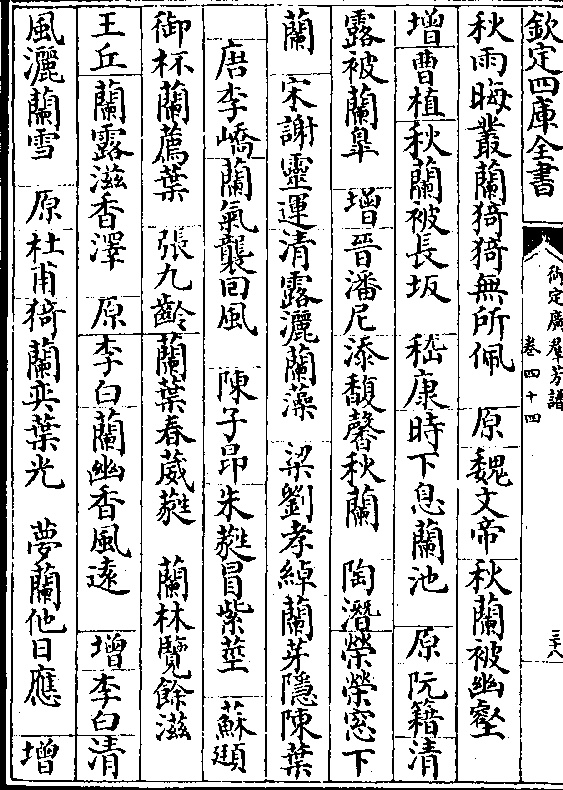 欽定四庫全書
御定廣羣芳譜
卷四十四
三十八
秋雨晦叢蘭猗猗無所佩　原魏文帝秋蘭被幽壑
增曹植秋蘭被長坂　嵇康時下息蘭池　原阮籍清
露被蘭臯　增晉潘尼添馥馨秋蘭　陶潛榮榮窓下
蘭　宋謝靈運清露灑蘭藻　梁劉孝綽蘭芽隱陳葉
唐李嶠蘭氣襲回風　陳子昂朱蕤冒紫莖　蘇頲
御杯蘭薦葉　張九齡蘭葉春葳蕤　蘭林覽餘滋
王丘蘭露滋香澤　原李白蘭幽香風遠　增李白清
風灑蘭雪　原杜甫猗蘭奕葉光　夢蘭他日應　增